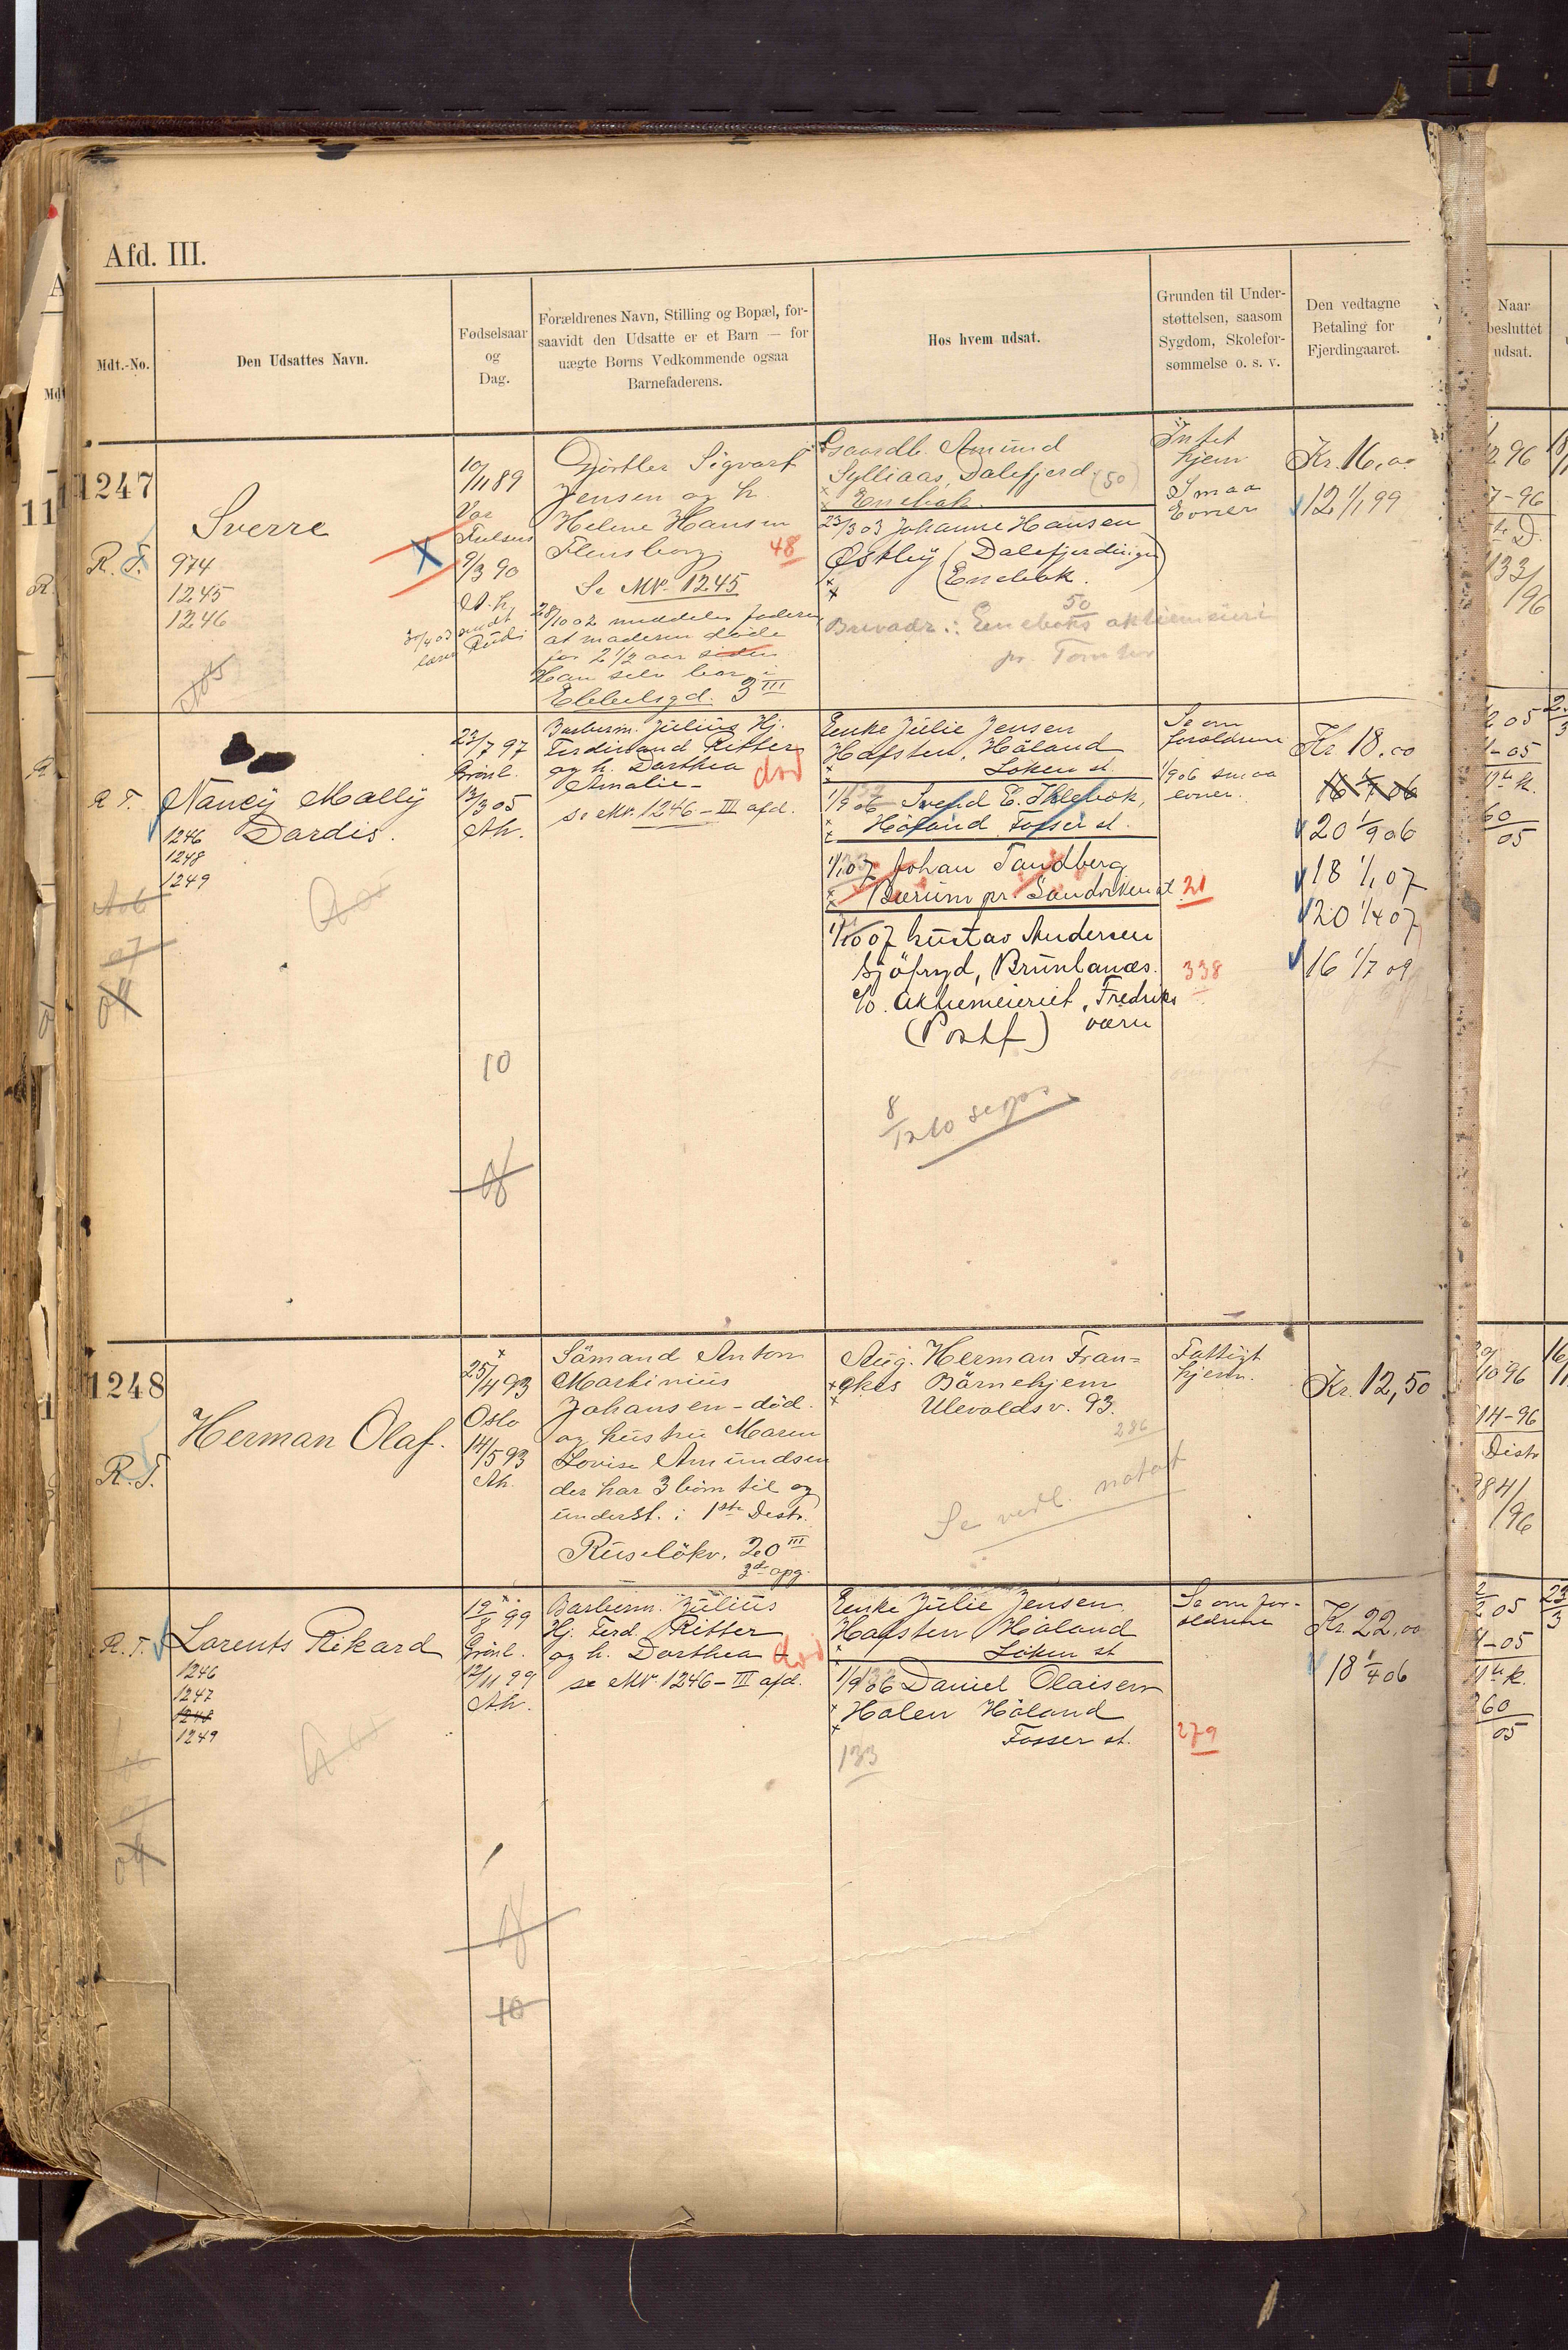 Afd. III.
Mdt.-No.
Den Udsattes Navn.
Fødselsaar
og
Dag.
Forældrenes Navn, Stilling og Bopæl, for-
saavidt den Udsatte er et Barn — for
uægte Børns Vedkommende ogsaa
Barnefaderens.
Hos hvem udsat.
Grunden til Under-
støttelsen, saasom
Sygdom, Skolefor-
sømmelse o. s. v.
Den vedtagne
Betaling for
Fjerdingaaret.
Naar
besluttet
udsat.
1247
R. T.
Sverre
974
1245
1246
10/11 89
Vor
Frelsers
9/3 90
Gjörtler Sigvart
Jensen og h.
Helene Hansen
Flensborg
48
Se Mr. 1245
28/10 02 meddeler faderen
at moderen döde
for 2 1/2 aar siden
Han selv bor i
Ebbelsgd. 3 III
Gaardb. Amund
Sylliaas, Dalefjerd (50)
Enebak.
23/3 03 Johanne Hansen
Østby (Dalefjerdingen
Enebak.)
50
Brevadr.: Enebaks aktiemeieri
pr. Tomter
Intet
hjem
Smaa
Evner
Kr. 16,00
12 1/1 99
R. T.
Nancy Mally
Dardis.
1246
1248
1249
23/7 97
Grönl.
12/3 05
Ah.
10
Barberm. Julius Hj.
Ferdinand Ritter
og h. Dorthea
Amalie
död
se Mr. 1246 - III afd.
Enke Julie Jensen
Hafsten, Höland
Löken st.
1/9 06 Svend E.
Höland Fosser st.
1/1 07 Johan Tandberg
Bærum pr. Sandviken st. 21
1/10 07 Gustav Andersen
Sjöfryd, Brunlanæs.
c/o. Aktiemeieriet, Fredriks
værn
(Postf)
338
8/12 10
Se om
foreldrene
1/9 06 smaa
evner.
Kr. 18.00
16 1/4 06
20 1/9 06
18 1/1 07
20 1/4 07
16 1/7 09
1248
R. T.
Herman Olaf.
25/4 93
Oslo
14/5 93
Ah.
Sömand Anton
Martinius
Johansen - död.
og hustru Maren
Lovise Amundsen
der har 3 börn til og
underst. i 1ste Distr.
Ruselökv. 20 III
3d opg.
Aug. Herman Fran=
ckes Börnehjem
Ulevoldsv. 93.
286
Se vedl. notat
Fattigt
hjem.
Kr. 12,50
R. T.
Lorents Rikard
1246
1247
1248
1249
19/9 99
Grönl.
12/11 99
Ah.
10
Barberm. Julius
Hj. Ferd. Ritter
og h. Dorthea
död
se Mr. 1246 - III afd.
Enke Julie Jensen
Hafsten Höland
Löken st
1/9 06 Daniel Olaisen
Holen Höland
Fosser st.
133
279
Se om for-
eldrene
Kr. 22,00
18 1/4 06